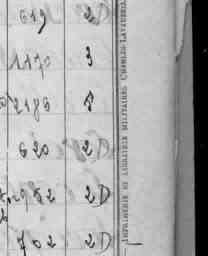 619 2D
1170 3
2186 5
620 2D
2962 2D
702 2D
IMPRIMERIE ET LIBRAIRIE MILITAIRES CHARLES-LAVAUZELLE